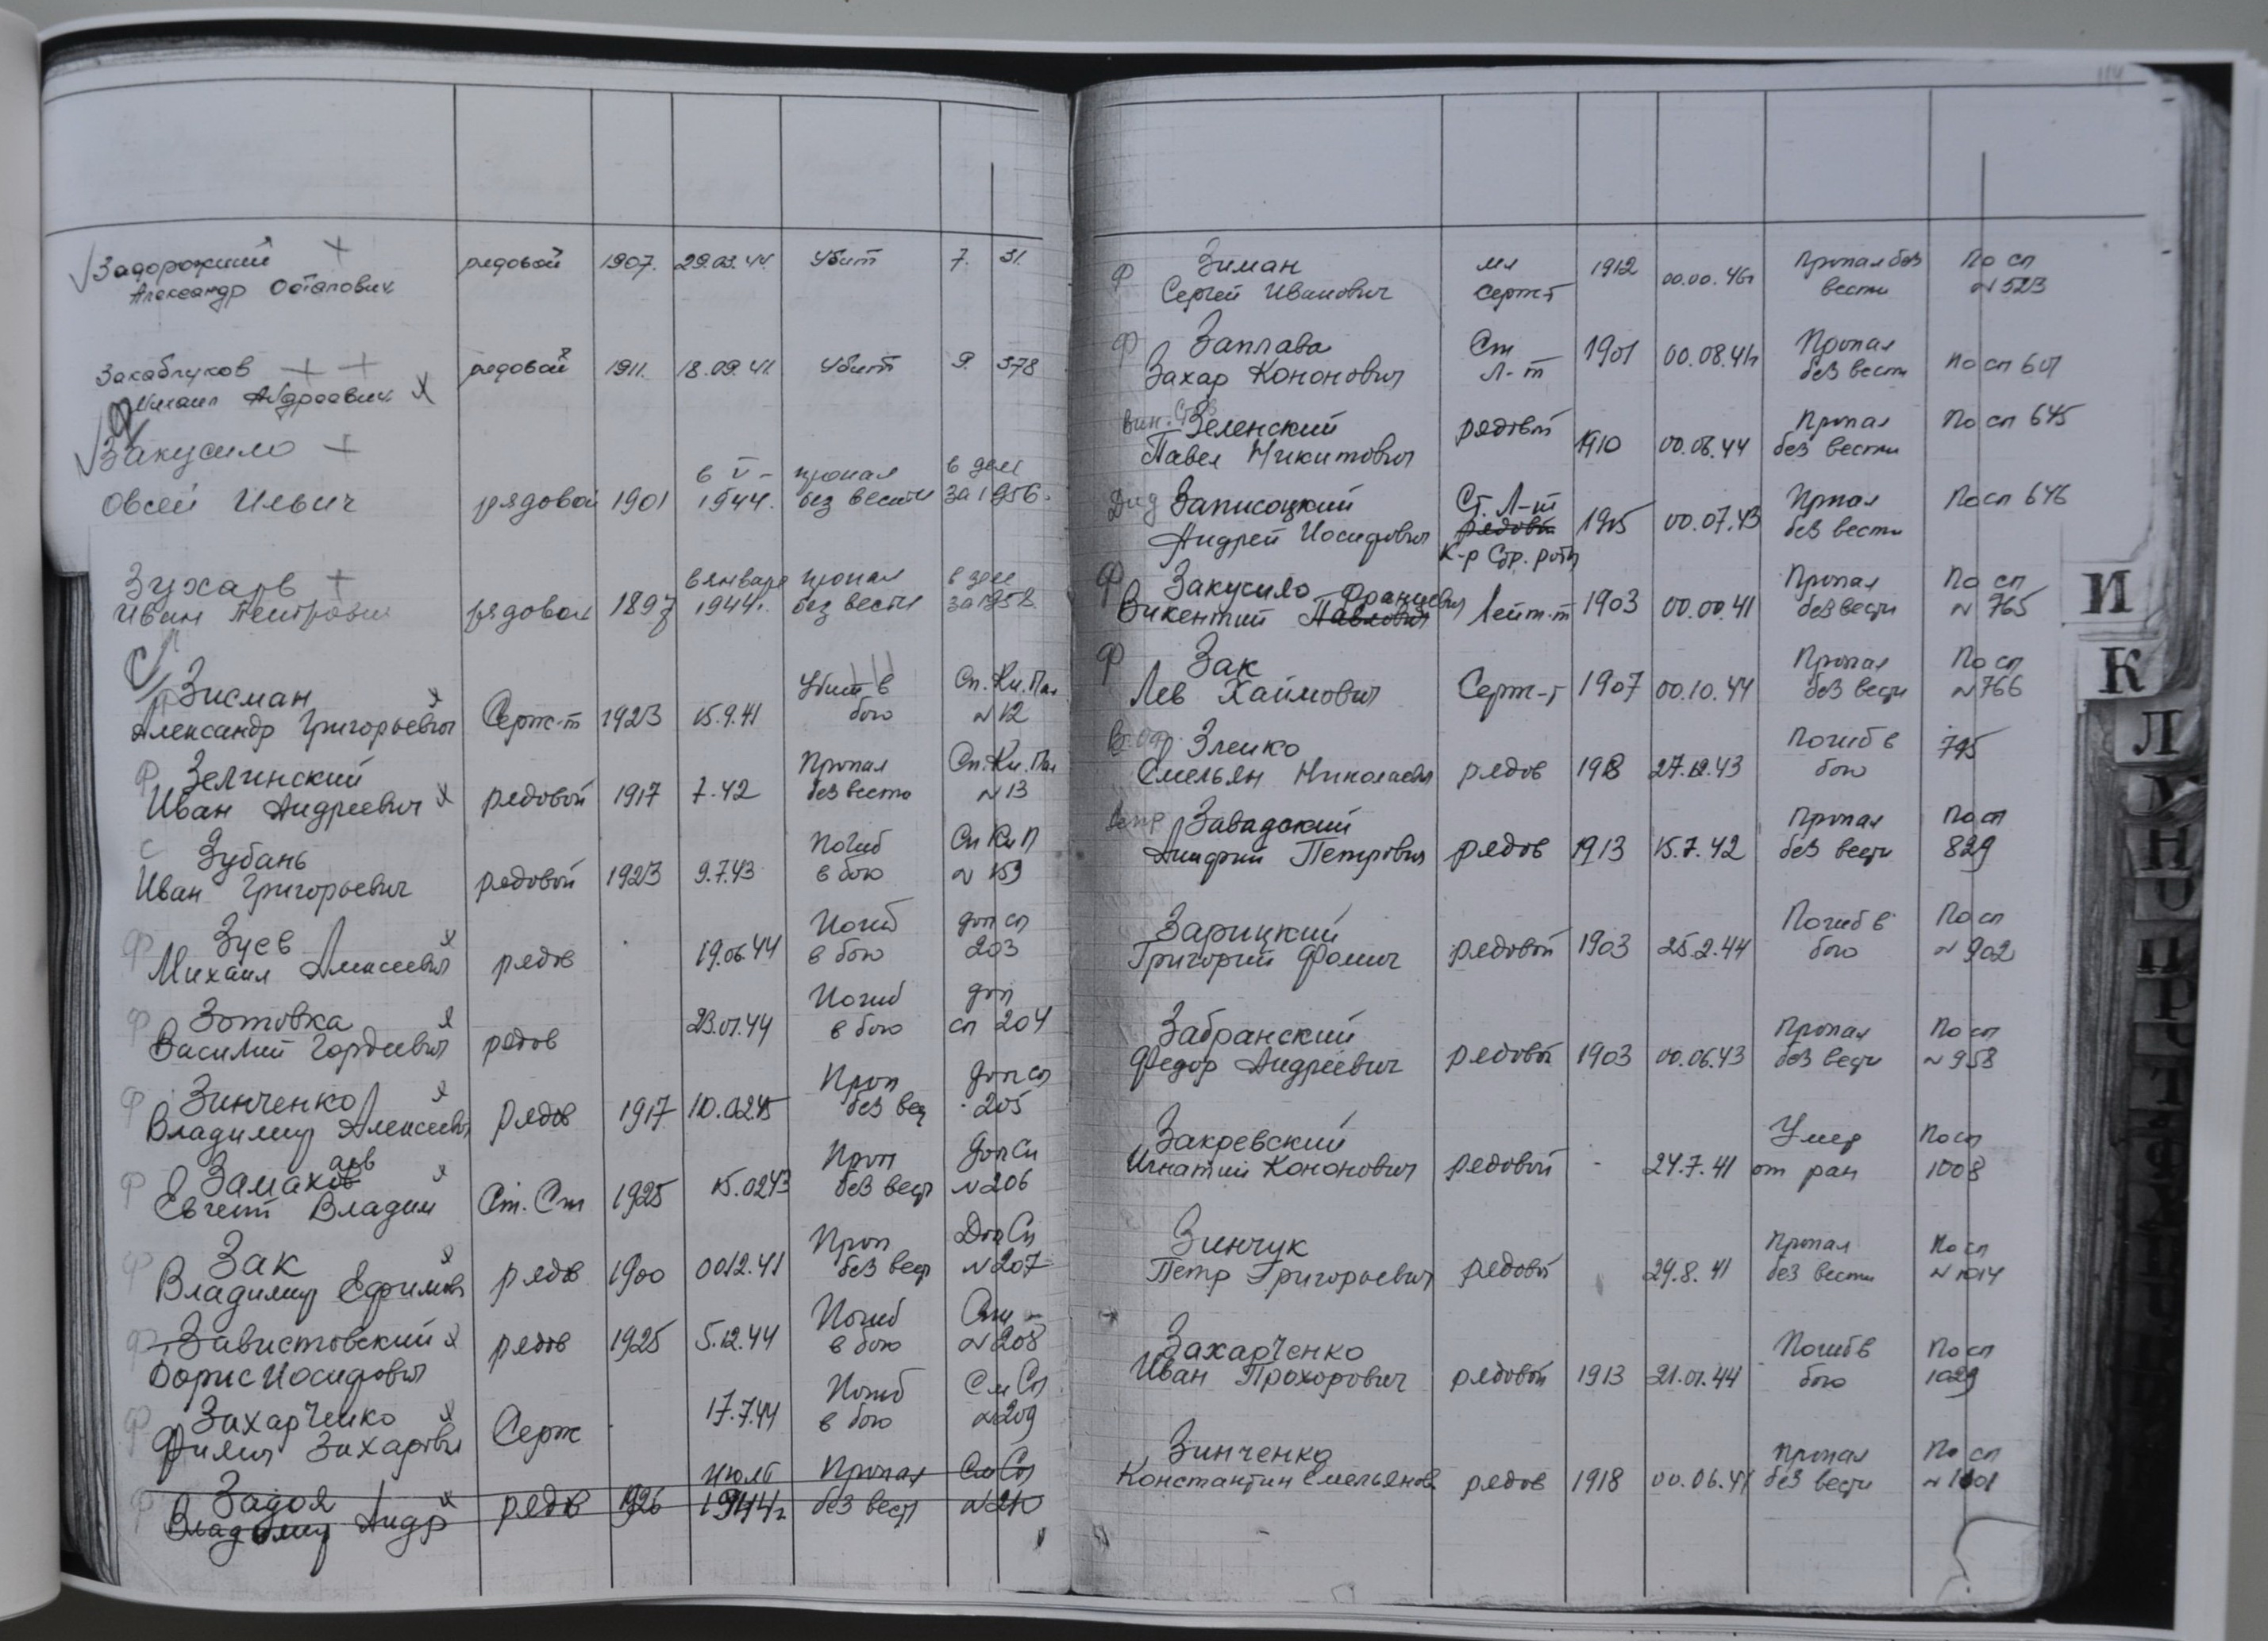 Задорожний + рядовой 1907. 29.03.44. Убит 7. 31.
Александр Остапович
Закаблуков + + рядовой 1911. 18.09.41. Убит 9. 378
Михаил Андреевич х
Закусило +
в V - пропал в деле
Овсей Ильич рядовой 1901 1944. без вести за 1956.
Зухарв + в январе пропал в деле
Иван Петрович рядовой 1897 1944г. без вести за 1958.
Зисман х Убит в Сп.Кн.Пам
Александр Григорьевич Серж-т 1923 15.9.41 бою №12
Ф Зелинский Пропал Сп.Кн.Пам
Иван Андреевич х рядовой 1917 7.42 без вести №13
С Зубань Погиб Сп Кн П
Иван Григорьевич рядовой 1923 9.7.43 в бою №159
Ф Зуев х Погиб доп сп
Михаил Алексеевич рядов 19.06.44 в бою 203
Ф Зотовка х Погиб доп
Василий Гордеевич рядов 23.01.44 в бою сп 204
Ф Зинченко х Проп доп сп
Владимир Алексеевич рядов 1917 10.02.45 без вес 205
Ф Замахаев х Проп доп сп
Евгений Владим Ст. Ст 1925 15.02.43 без вест №206
Ф Зак х Проп Доп Сп
Владимир Ефимов рядов 1900 00.12.41 без вест №207
Ф Завистовский х рядов 1925 5.12.44 Погиб в бою №208
Борис Иосифович
Ф Захарченко х Серж 17.7.44 Погиб См Сп
Филип Захаров в бою №209
Ф Задоя х рядов 1926 июль Пропал См Сп
Владимир Андр 1944г без вест №210
114
Ф Зиман мл 1912 00.00.46г Пропал без По сп
Сергей Иванович серж-т вести №523
Ф Заплава Ст 1901 00.08.41г Пропал По сп 601
Захар Кононович Л-т без вести
Вин. Зеленский рядовой 1910 00.06.44 Пропал По сп 645
Павел Никитович без вести
Записоцкий Ст. Л-т 1905 00.07.43 Пропал По сп 646
Андрей Иосифович рядовой без вести
К-р Стр. роты
Ф Закусило Францевич Пропал По сп
Викентий Павлович Лейт-т 1903 00.00.41 без вести №765
Ф Зак Пропал По сп
Лев Хаймович Серж-т 1907 00.10.44 без вести №766
Злеико Погиб в 795
Емельян Николаевич рядов 1918 27.12.43 бою
Завадский Пропал По сп
Петрович рядов 1913 15.7.42 без вести 829
Зарицкий Погиб в По сп
Григорий Фомич рядовой 1903 25.2.44 бою №902
Забранский Пропал По сп
Федор Андреевич рядовой 1903 00.06.43 без вести №958
Закревский Умер По сп
Игнатий Кононович рядовой - 24.7.41 от ран 1008
Зинчук Пропал По сп
Петр Григорьевич рядовой 29.8.41 без вести №1014
Захарченко Погиб в По сп
Иван Прохорович рядовой 1913 21.01.44 бою 1029
Зинченко Пропал По сп
Константин Емельянов. рядов 1918 00.06.41 без вести №1101
И
К
Л
М
Н
О
П
Р